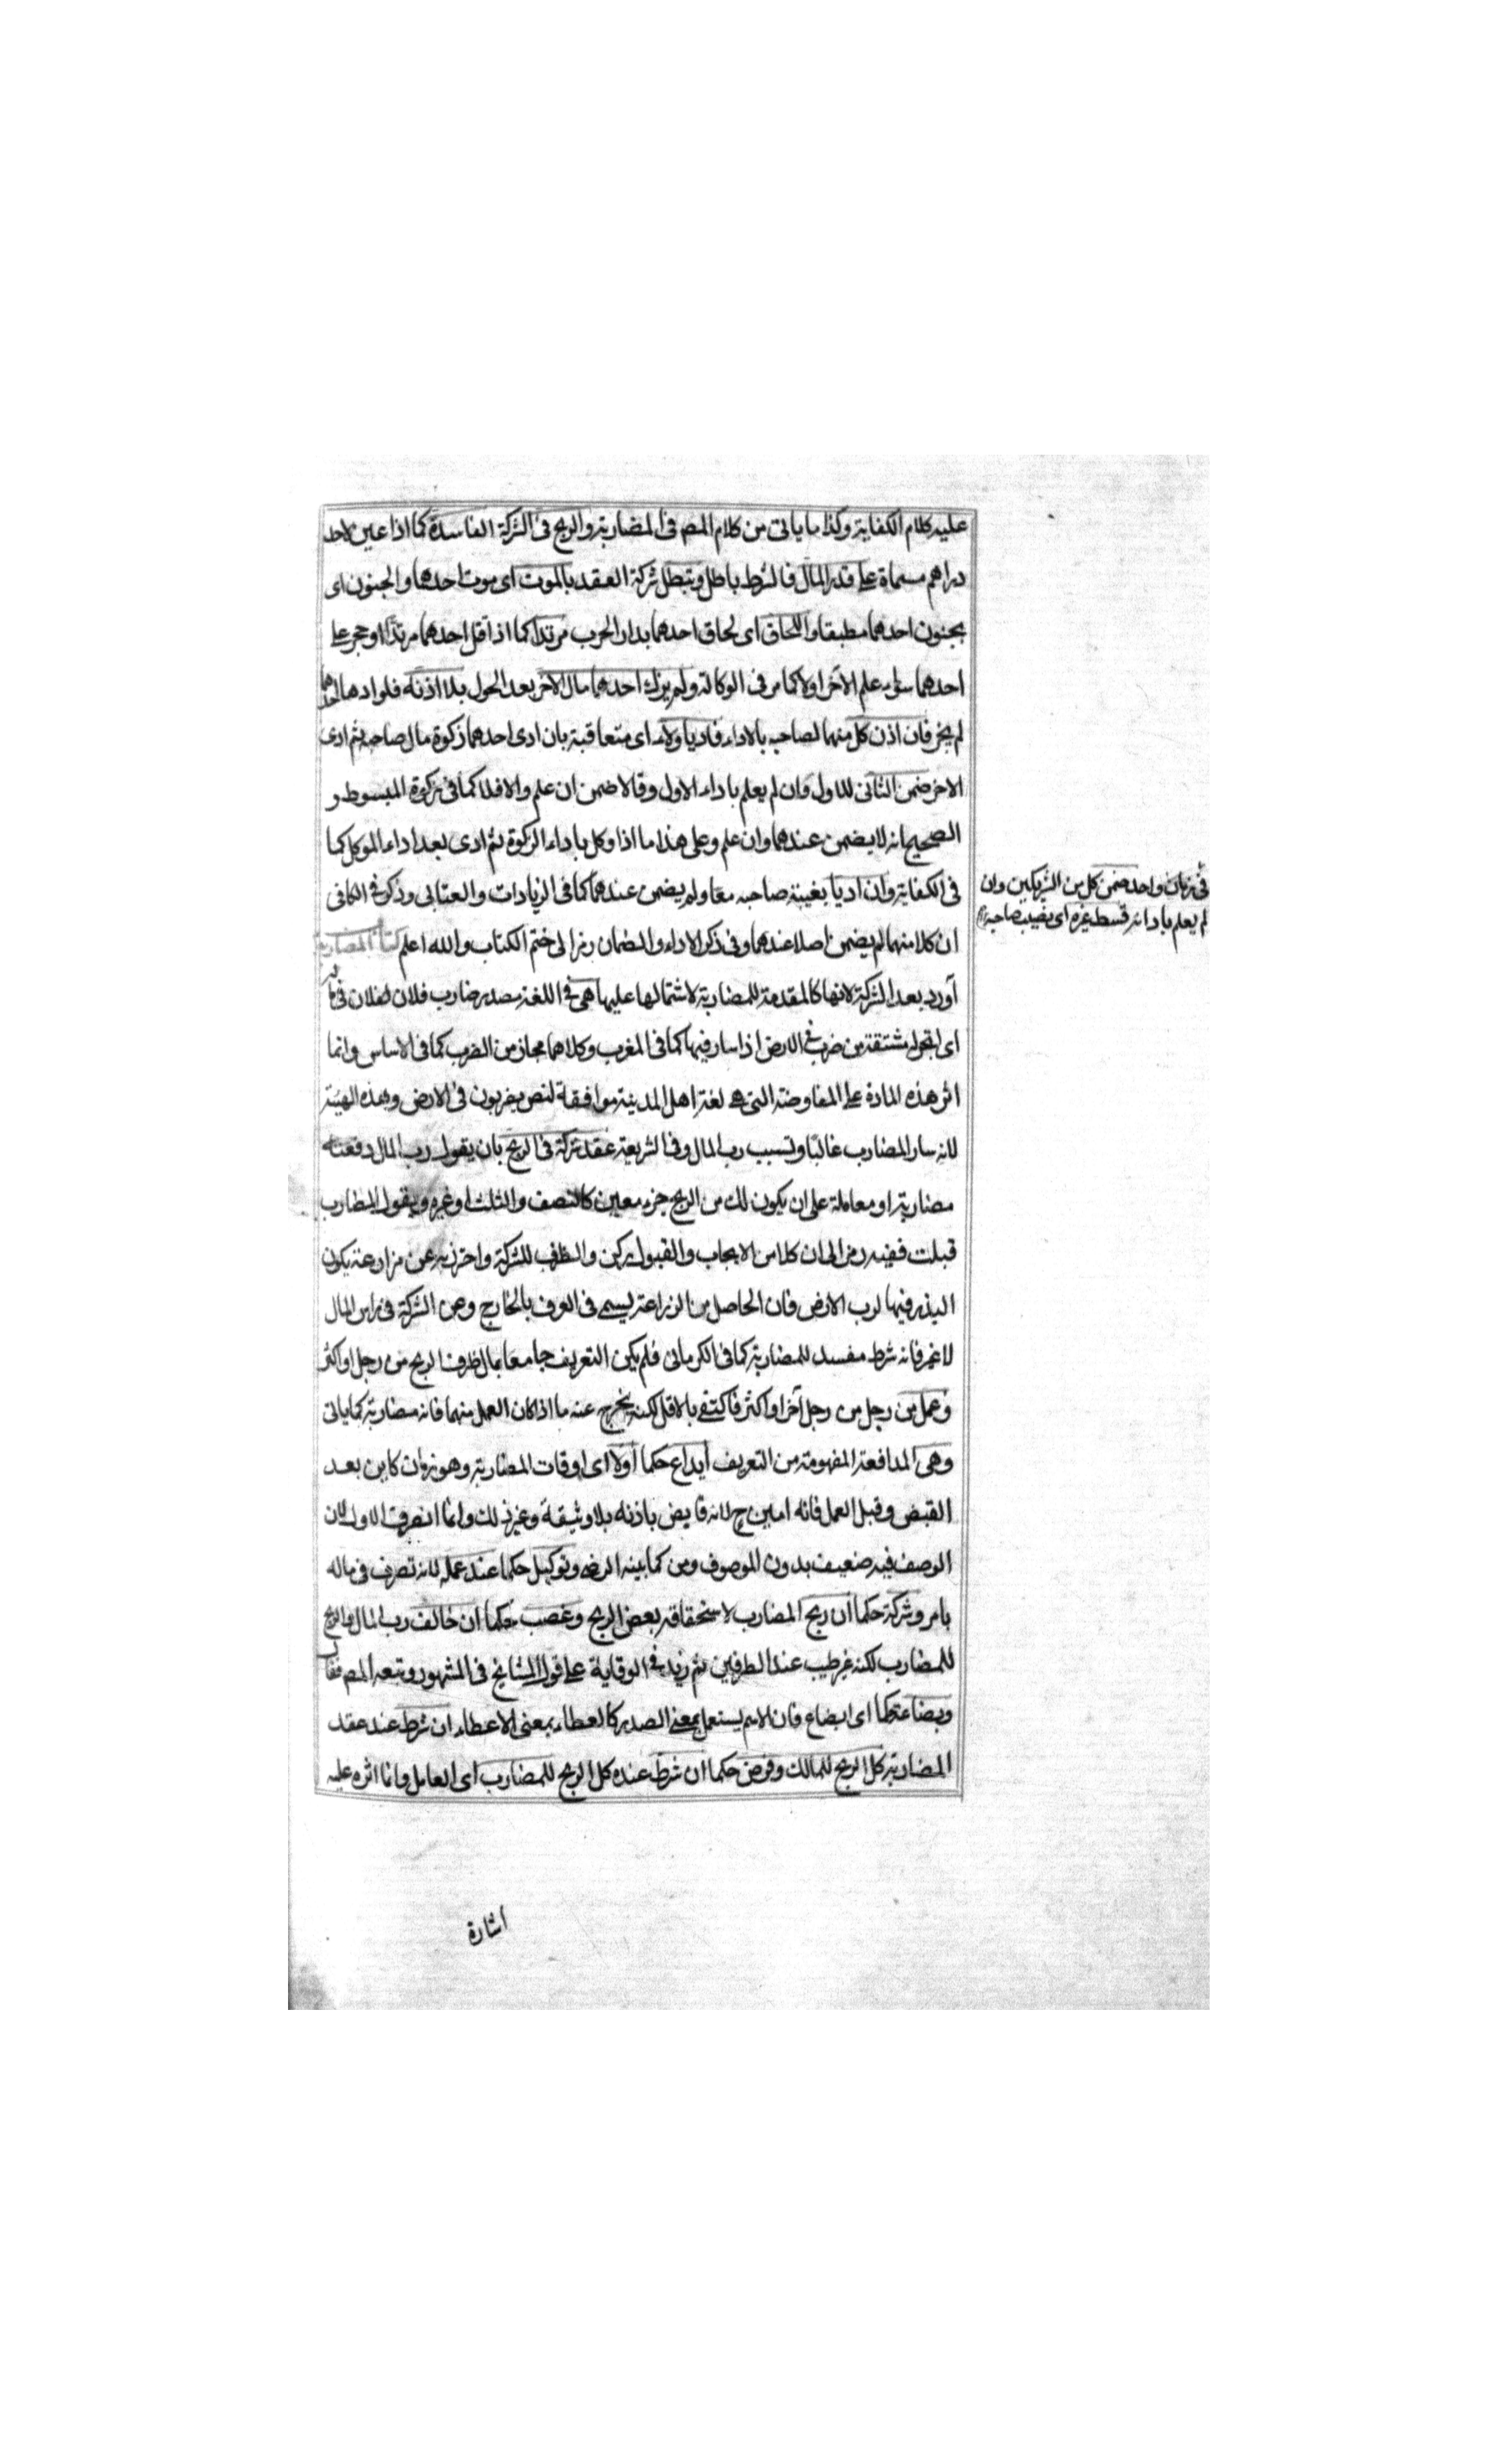 عليه كلام الكفاية وكذا ما ياتى من كلام المص فى المضاربة والربح فى الشركة الفاسدة كما اذا عين لاحد
دراهم مسماة على قدر المال فالشرط باطل وتبطل شركة العقد بالموت اى موت احدهما والجنون اى
بجنون احدهما مطبقا واللحاق اى لحاق احدهما بدار الحرب مرتدا كما اذا قتل احدهما مرتدا او حجر على
احدهما سواء علم الآخر اولا كما مر فى الوكالة ولم يزك احدهما مال الآخر بعد الحول بلا اذنه فلو ادها احدهما
لم يجز فان اذن كل منهما لصاحبه بالاداء فاديا ولاء اى متعاقبة بان ادى احدهما زكوة مال صاحبه ثم ادى
الاخر ضمن الثانى للاول وان لم يعلم باداء الاول وقالا ضمن ان علم والا فلا كما فى زكوة المبسوط و
الصحيح انه لا يضمن عندهما وان علم وعلى هذا ما اذا وكل باداء الزكوة ثم ادى بعد اداء الموكل كما
فى الكفاية وان اديا بغيبة صاحبه معا ولم يضمن عندهما كما فى الزيادات والعتابى وذكر فى الكافى
فى زمان واحد ضمن كل من الشريكين وان
لم يعلم بادائه قسط غيره اى نصيب صاحبه
ان كلا منهما لم يضمن اصلا عندهما وفى ذكر الاداء والضمان رمز الى ختم الكتاب والله اعلم كتاب المضاربة
آورد بعد الشركة لانها كالمقدمة للمضاربة لاشتمالها عليها هى فى اللغة مصدر ضارب فلان لفلان فى ماله
اى اتجر له مشتقة من ضرب فى الارض اذا سار فيها كما فى المغرب وكلاهما مجاز من الضرب كما فى الاساس وانما
اثر هذه المادة على المفاوضة التى هى لغة اهل المدينة موافقة لنص يضربون فى الارض وهذه الهيئة
لانه سار المضارب غالبا وتسبب رب المال وفى الشريعة عقد شركة فى الربح بان يقول رب المال دفعته
مضاربة او معاملة على ان يكون لك من الربح جزء معين كالنصف والثلث او غيره ويقول المضارب
قبلت ففيه رمز الى ان كلا من الايجاب والقبول ركن والظرف للشركة واحترز به عن مزارعة يكون
البذر فيها لرب الارض فان الحاصل من الزراعة يسمى فى العرف بالخارج وعن الشركة فى راس المال
لا غير فانه شرط مفسد للمضاربة كما فى الكرمانى فلم يكن التعريف جامعا بمال ظرف الربح من رجل او اكثر
وعمل من رجل من رجل آخر او اكثر فاكتفى بالاقل لكنه يخرج عنه ما اذا كان العمل منهما فانه مضاربة كما ياتى
وهى المدافعة المفهومة من التعريف ايداع حكما اولا اى اوقات المضاربة وهو زمان كاين بعد
القبض وقبل العمل فانه امين ح لانه قابض باذنه بلا وثيقة وغير ذلك وانما انصرف الاول لان
الوصف فيه ضعيف بدون الموصوف ومن كما بينه الرضى وتوكيل حكما عند عمله لانه تصرف فى ماله
بامره وشركة حكما ان ربح المضارب لاستحقاقه بعض الربح وغصب حكما ان خالف رب المال والربح
للمضارب لكنه غير طيب عند الطرفين ثم زيد فى الوقاية على قول المشايخ فى المشهور وتبعه المص فقال
وبضاعة حكما اى ابضاع فان الاسم يستعمل بمعنى المصدر كالعطاء بمعنى الاعطاء ان شرط عند عقد
المضاربة كل الربح للمالك وقرض حكما ان شرط عنده كل الربح للمضارب اى العامل وانما اثره عليه
اشارة